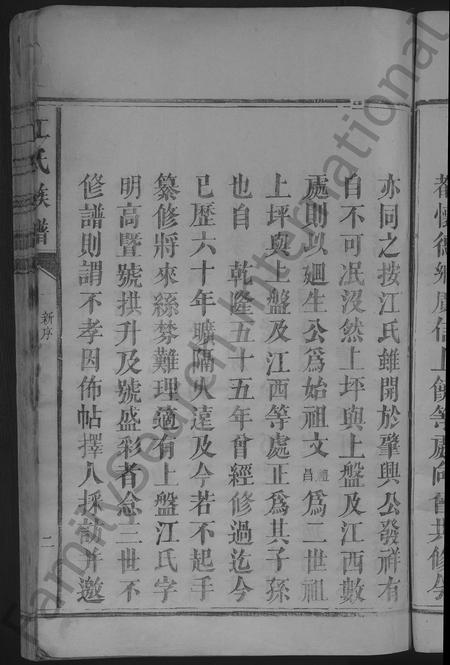 耆懷德鄉廣信上饒等處向曾共修今
亦同之按江氏雖開於肇興公發祥有
自不可泯沒然上坪與上盤及江西數
處則以廻生公爲始祖文禮昌爲二世祖
上坪與上盤及江西等處正爲其子孫
也自 乾隆五十五年曾經修過迄今
已歷六十年曠隔久遠及今若不起手
纂修將來絲棼難理適有上盤江氏字
明高暨號拱升及號盛彩者念三世不
修譜則謂不孝因佈帖擇人採訪并邀
江氏族譜
新序
二
FamilySearch International